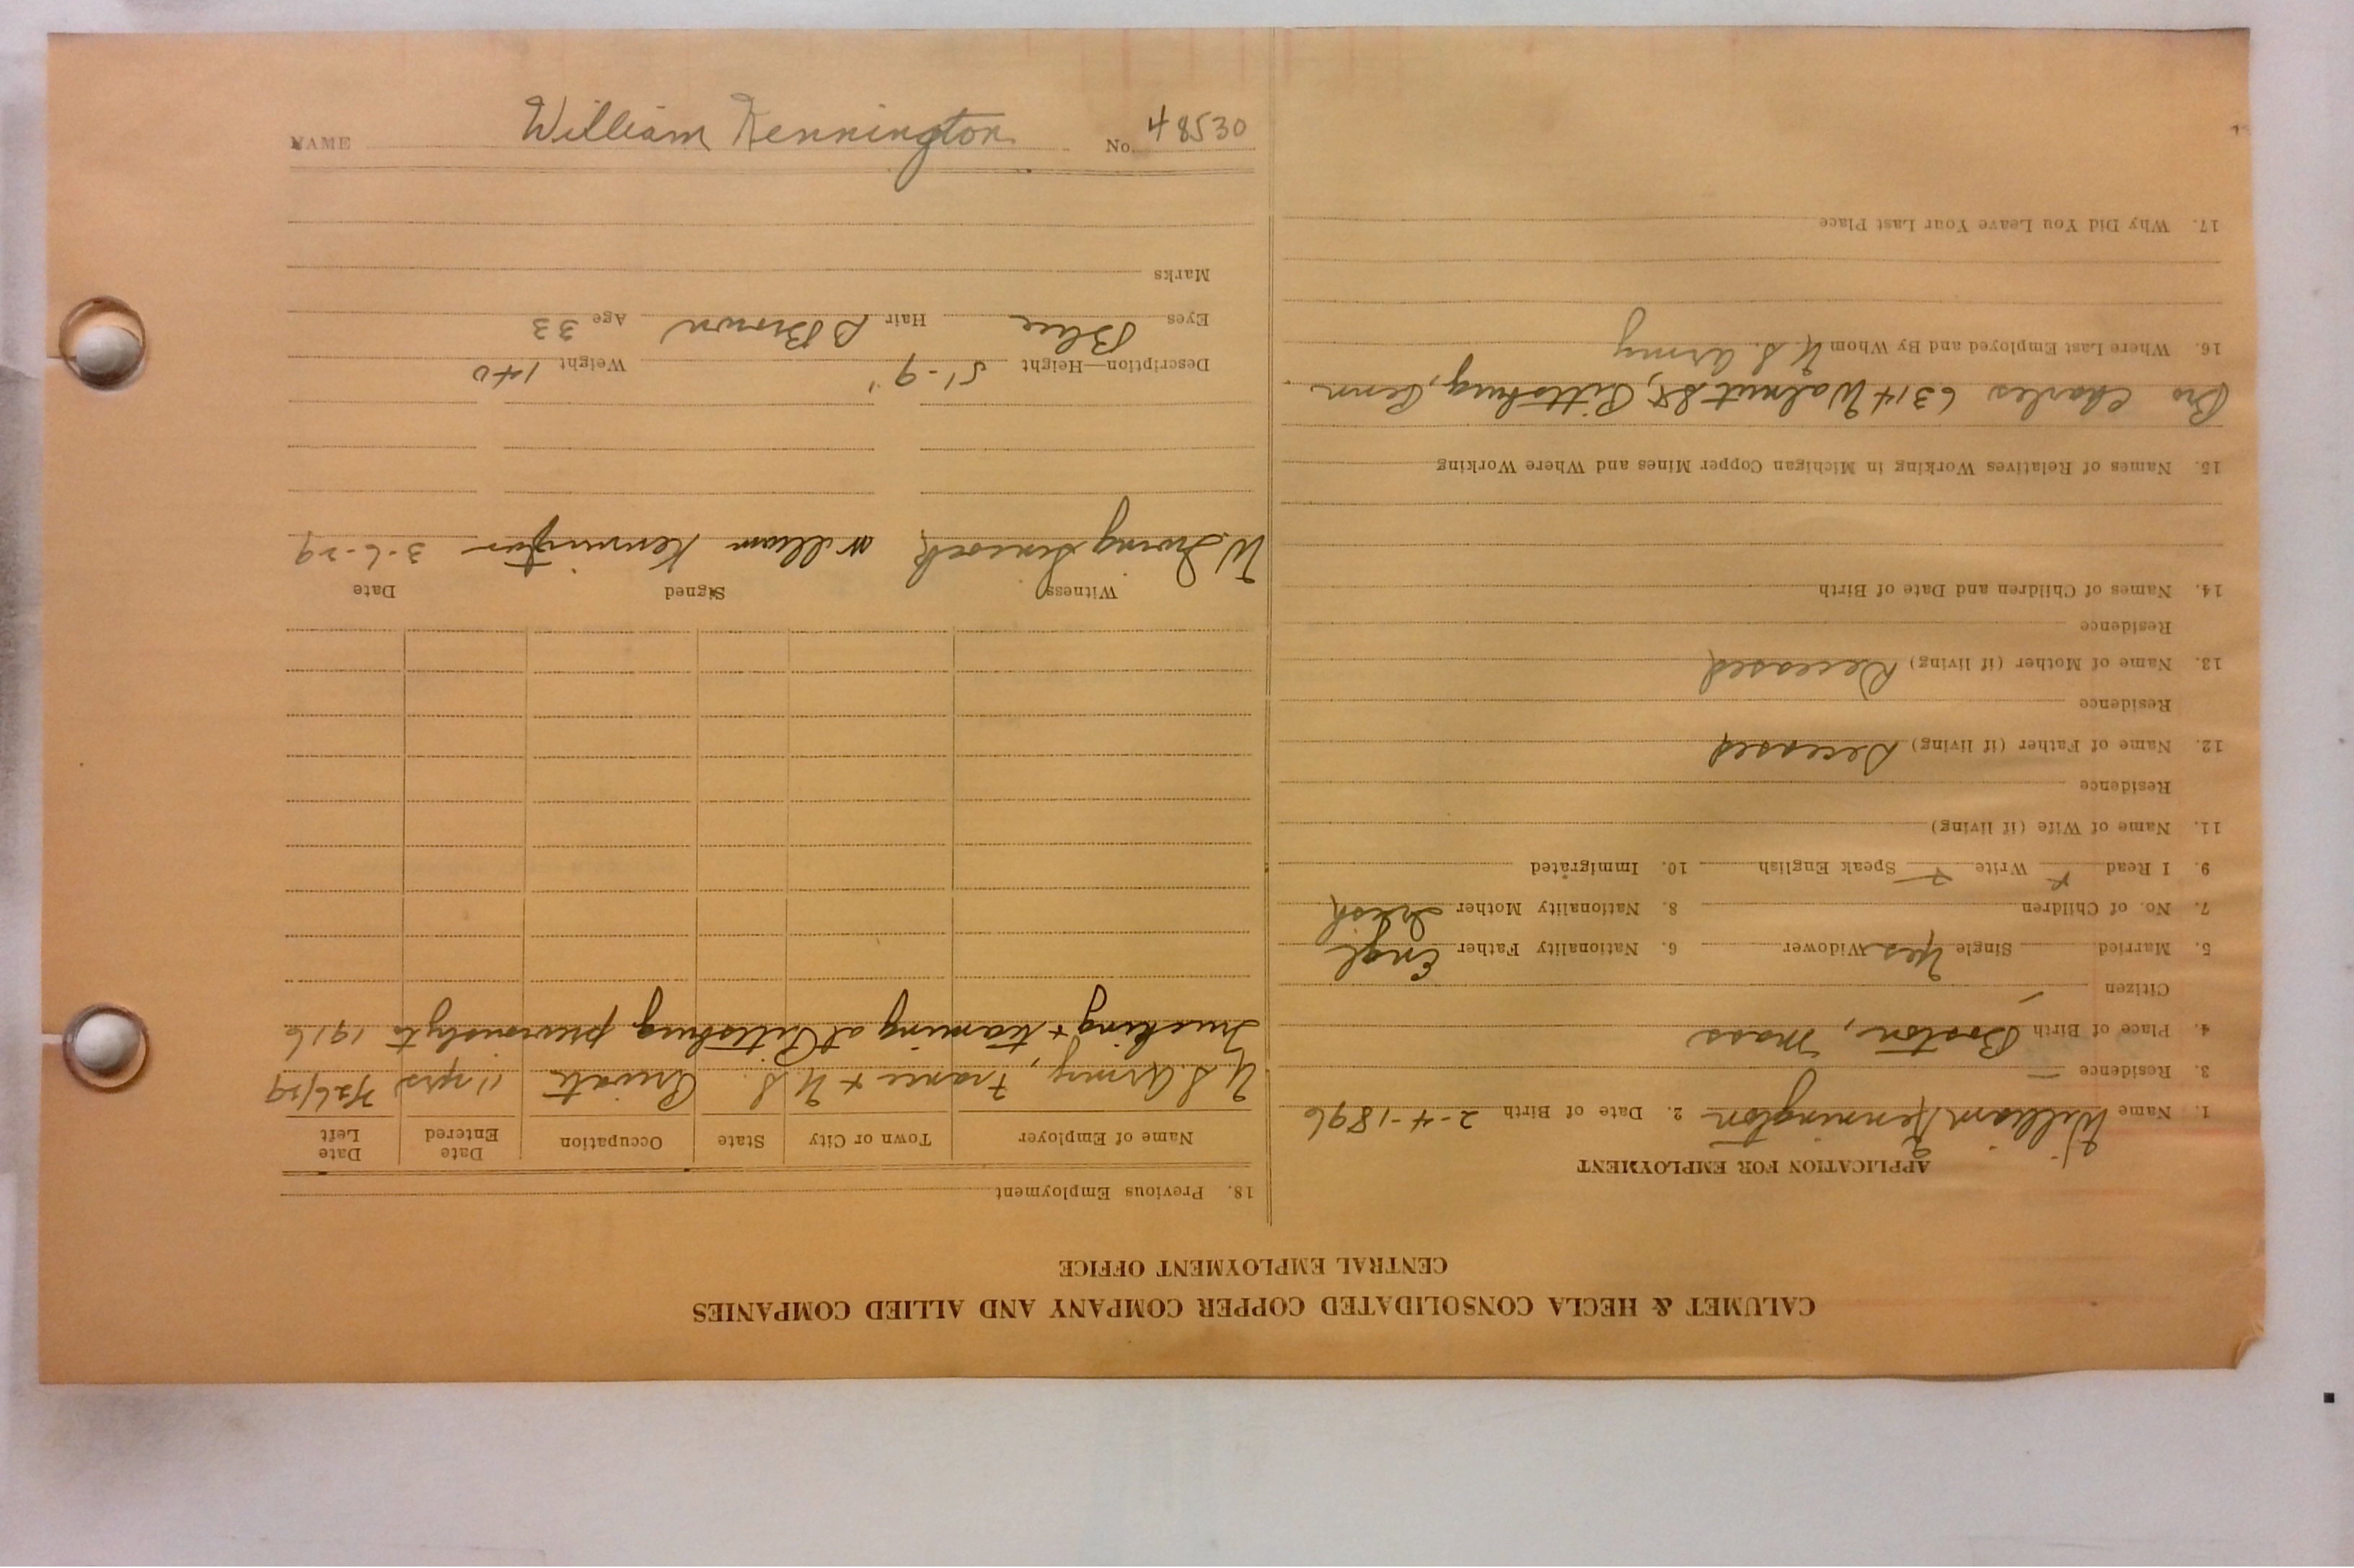 NAME William Kennington No. 48530
CALUMET & HECLA CONSOLIDATED COPPER COMPANY AND ALLIED COMPANIES
CENTRAL EMPLOYMENT OFFICE
APPLICATION FOR EMPLOYMENT
1. Name William Kennington 2. Date of Birth 2-4-1896
3. Residence —
4. Place of Birth Boston, Mass
Citizen
5. Married Single Yes Widower 6. Nationality Father Engl
7. No. of Children 8. Nationality Mother Irish
9. I Read x Write x Speak English 10. Immigrated
11. Name of Wife (if living)
Residence
12. Name of Father (if living) Deceased
Residence
13. Name of Mother (if living) Deceased
Residence
14. Names of Children and Date of Birth
15. Names of Relatives Working in Michigan Copper Mines and Where Working
Bro Charles 6314 Walnut St, Pittsburg, Penn.
16. Where Last Employed and By Whom U.S. Army
17. Why Did You Leave Your Last Place
18. Previous Employment
Name of Employer Town or City State Occupation Date Entered Date Left
U.S. Army, France & U S. Private 11 yrs 2/26/29
Trucking & teaming at Pittsburg previously to 1916
Witness Signed Date
W. Irving William Kennington 3-6-29
Description—Height 5'-9" Weight 140
Eyes Blue Hair B Brown Age 33
Marks